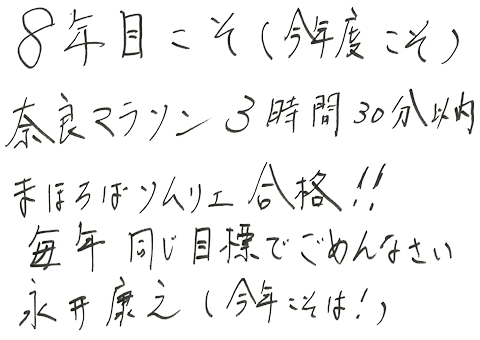 8年目こそ(今年度こそ)
奈良マラソン3時間30分以内
まほろばソムリエ合格!!
毎年同じ目標でごめんなさい
永井康之(今年こそは!)